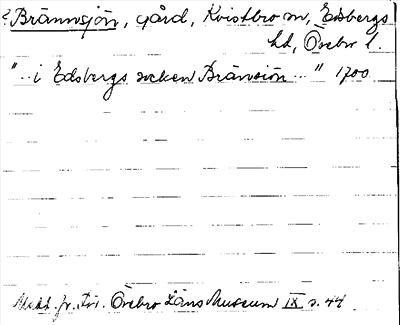 ? Brännsjön, gård, Kvistbro sn, Edsbergs
hd, Örebro l.
"... i Edsbergs socken Bränsiön ..." 1700
Medd. fr. För. Örebro Läns Museum IX s. 44